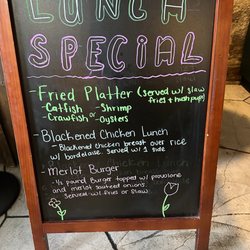 LUNCH
SPECIAL
-Fried Platter (served w/ slaw
fries + hushpups)
-Catfish -Shrimp
or
-Crawfish -Oysters
-Blackened Chicken Lunch
-Blackened chicken breast over rice
w/ bordelaise. Served w/ 1 side
-Merlot Burger
-½ pound Burger topped w/ provolone
and merlot sauteed onions.
Served w/ fries or slaw.